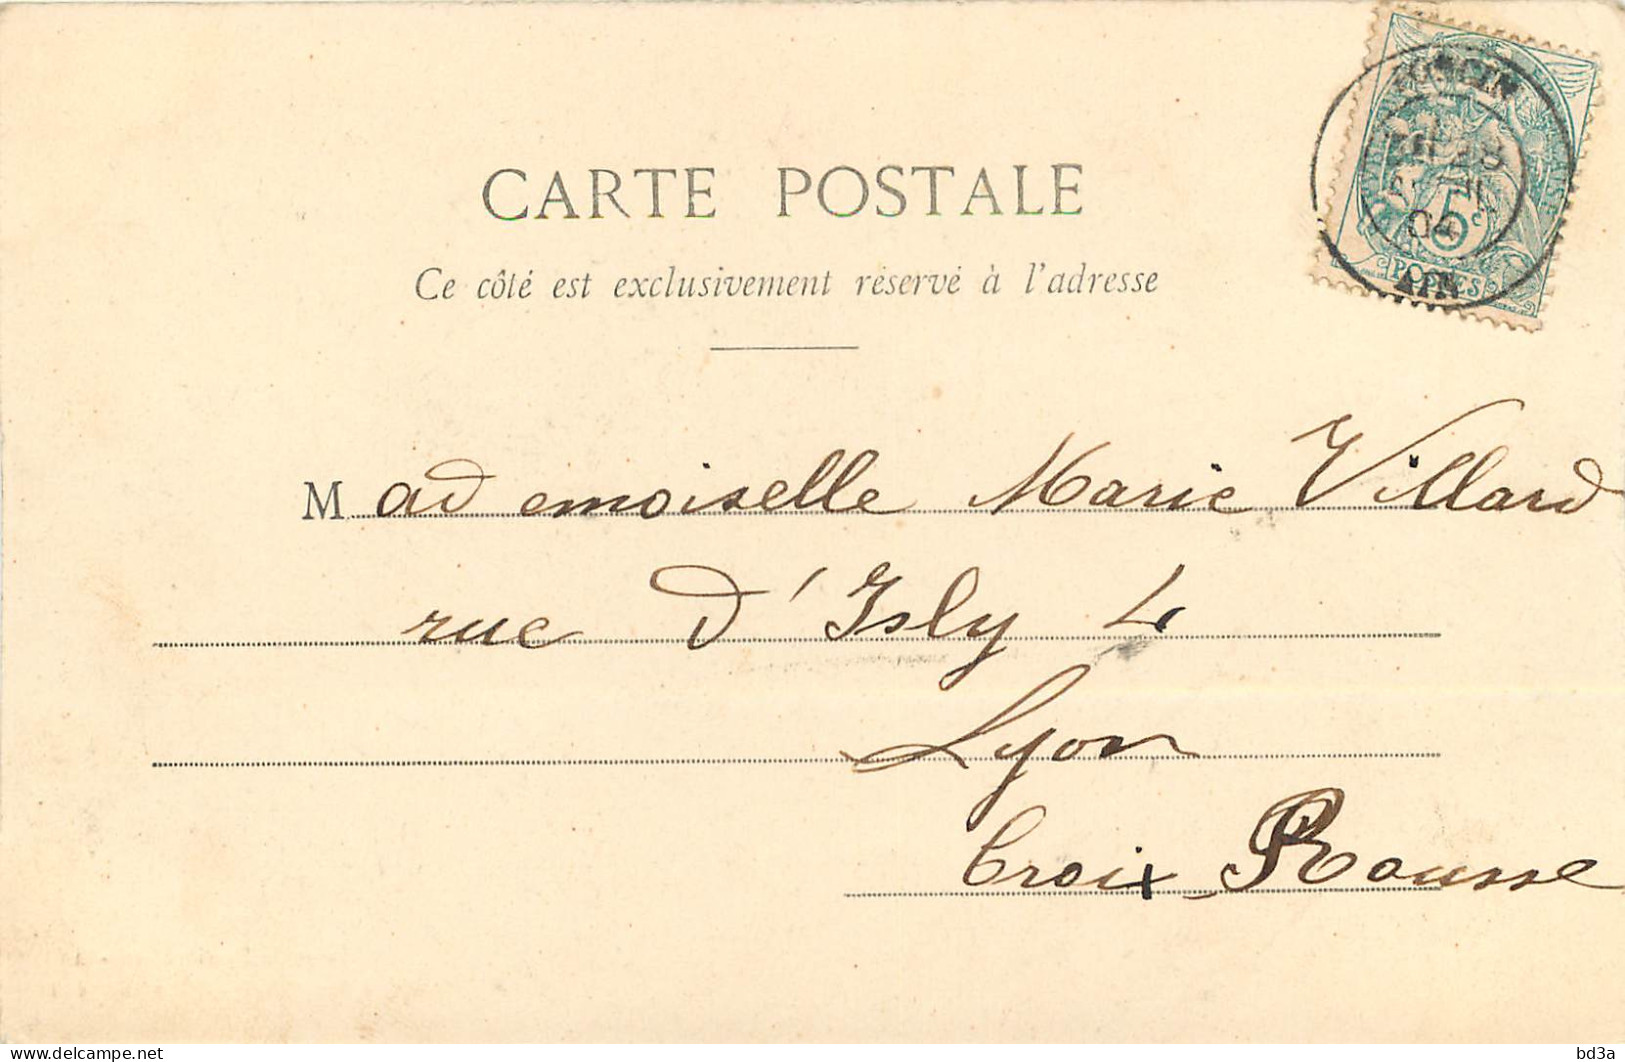 CARTE POSTALE
Ce côté est exclusivement réservé à l'adresse
5c
POSTES
28
04
AIN
Mademoiselle Marie Villard
rue d'Isly 4
Lyon
Croix Rousse
delcampe.net
bd3a